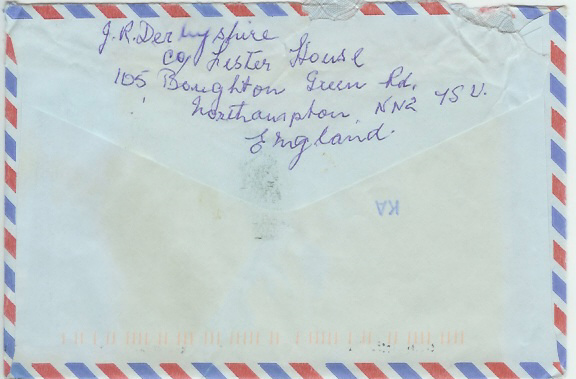 J.R.Derbyshire
c/o Lester House
105 Boughton Green Rd.
Northampton, NN2 7SU.
England.
KA